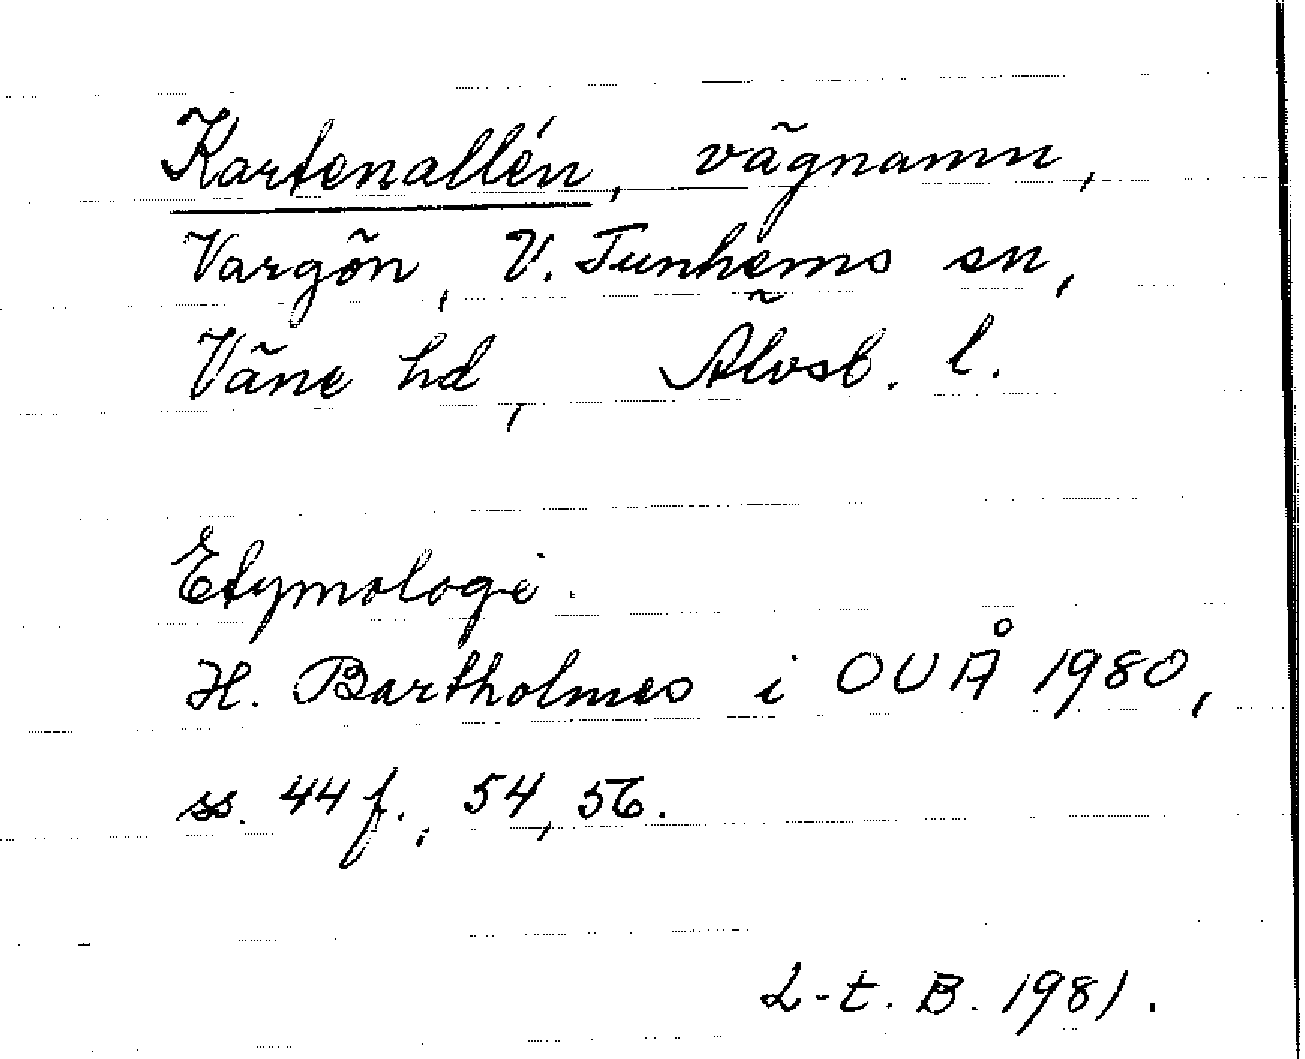 Kartenallén, vägnamn,
Vargön, V. Tunhems sn,
Väne hd, Älvsb. l.
Etymologi:
H. Bartholmes i OUÅ 1980,
ss. 44 f., 54, 56.
L-t. B. 1981.